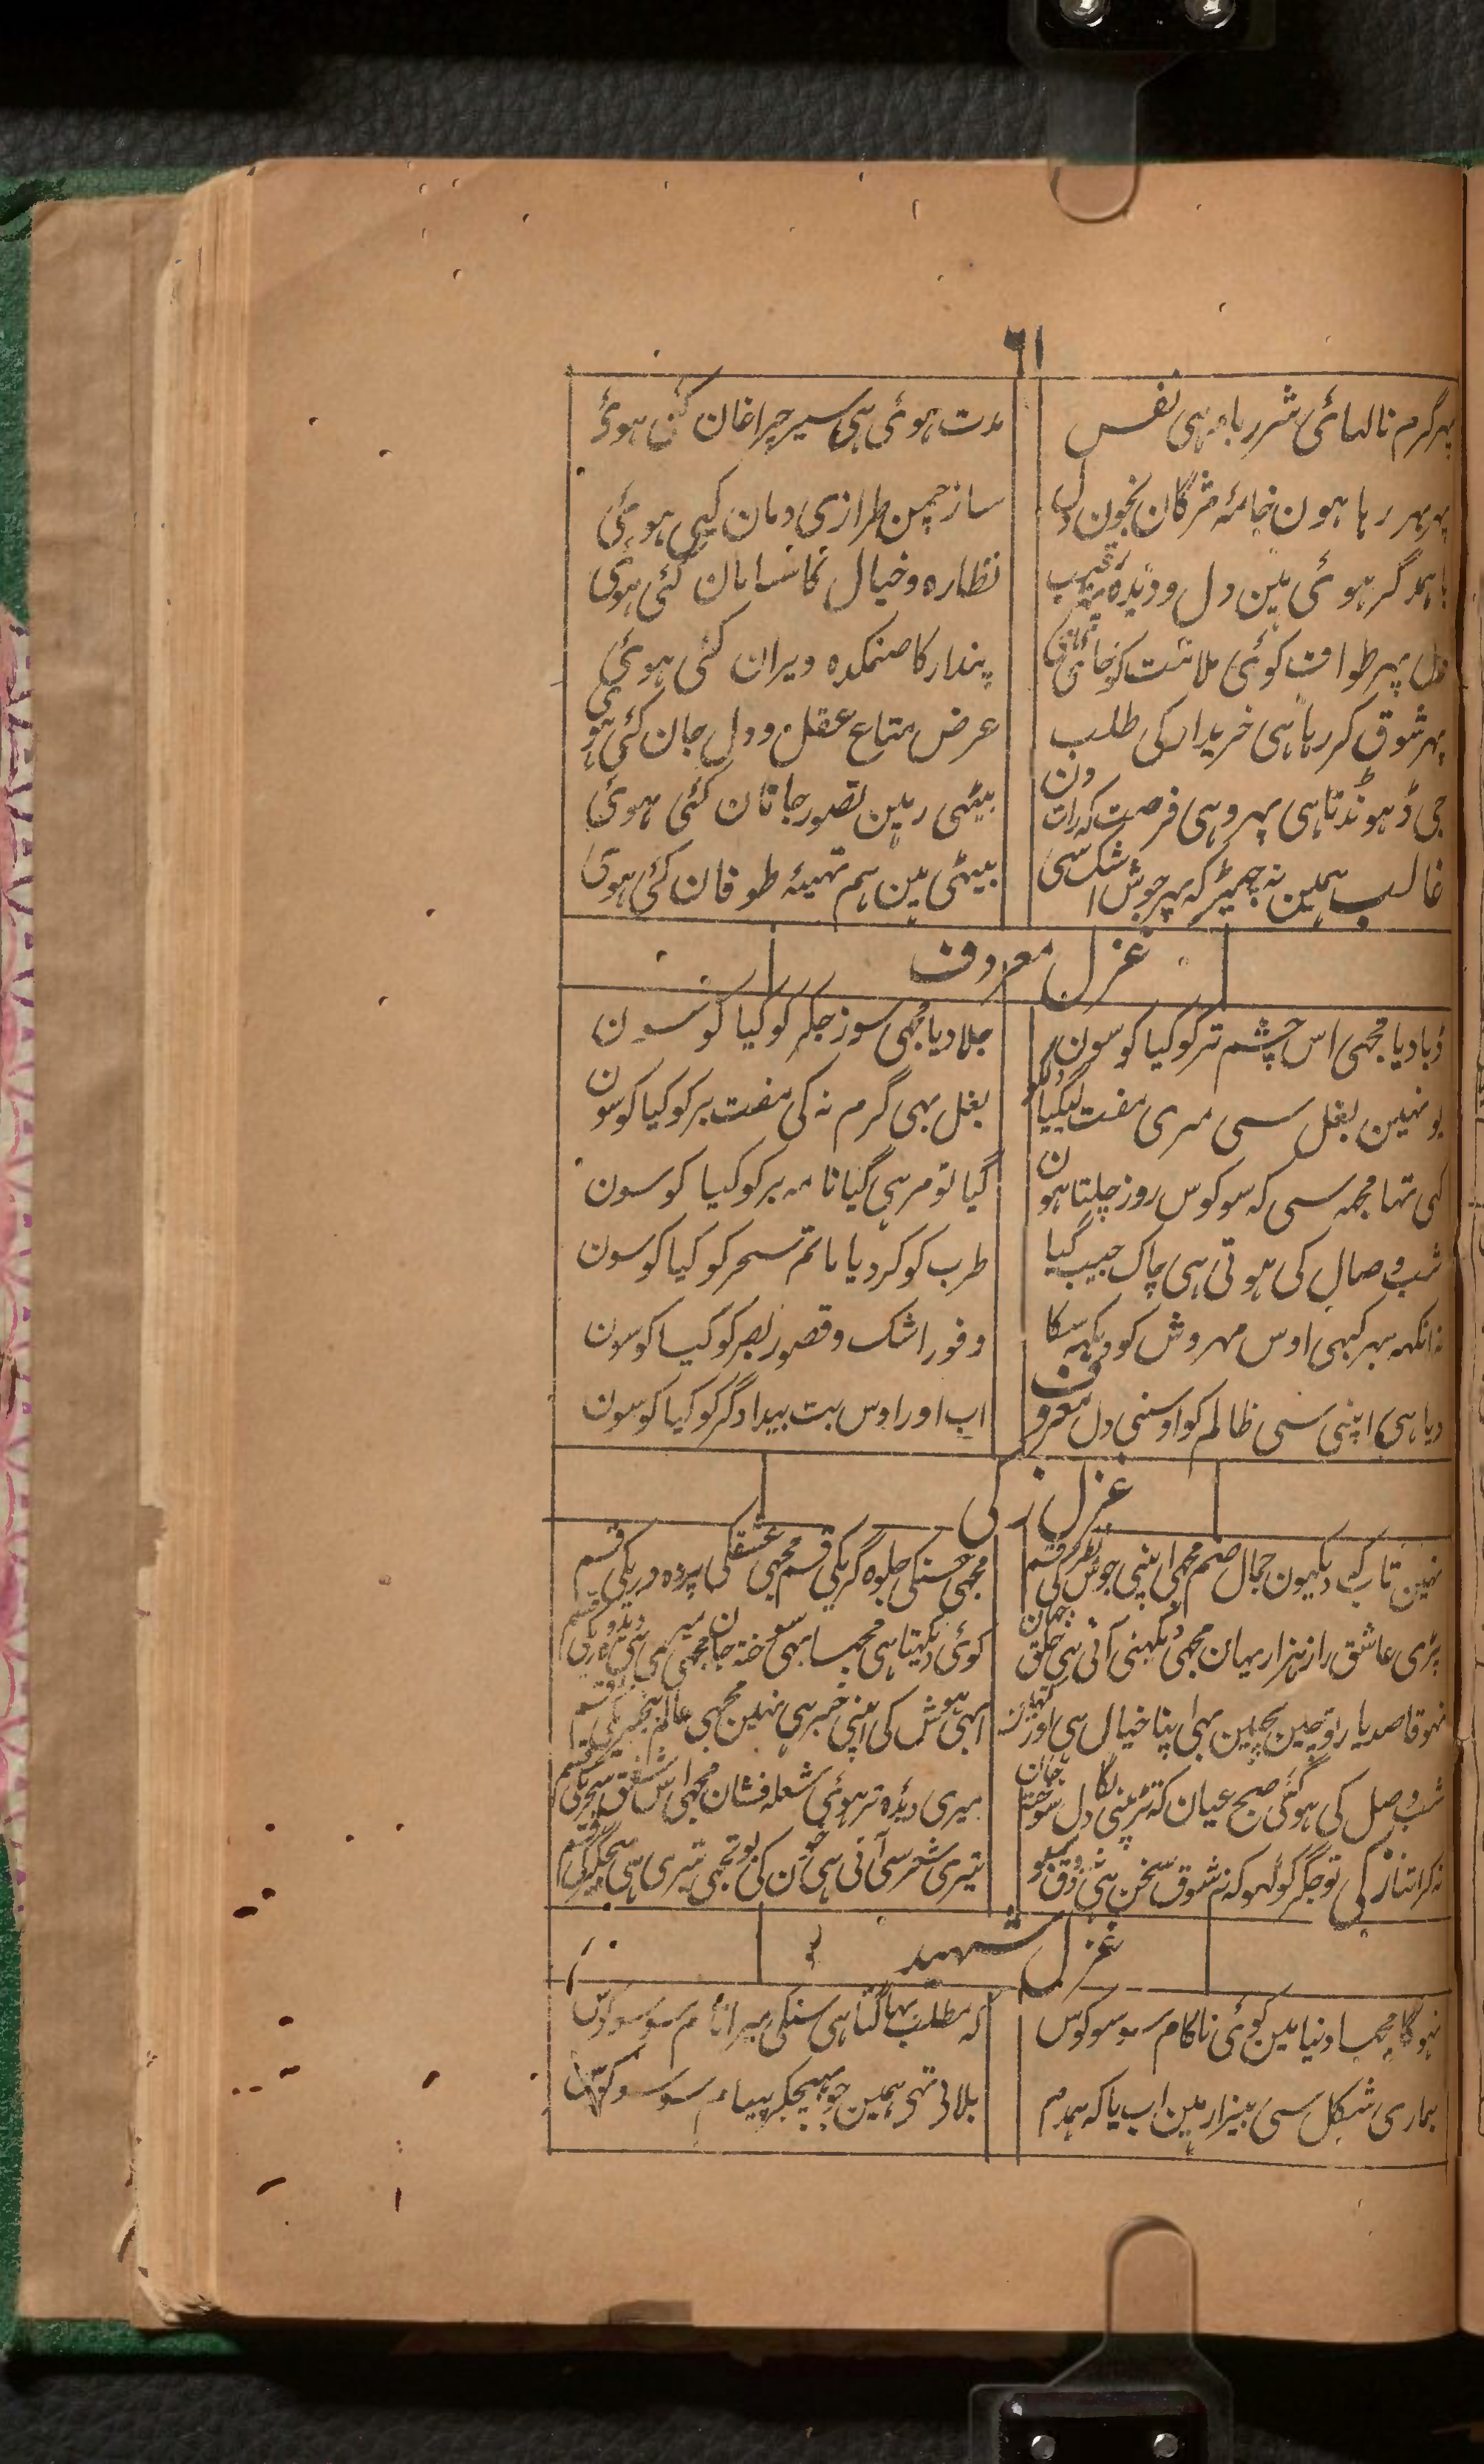 ٦١
پہر گرم نالہائی شرر بار ہی نفس
مدت ہوئی ہی سیر چراغان کئی ہوئی
پہر بہر رہا ہون خامۂ مژگان بخون دل
ساز چمن طرازی دمان کیی ہوئی
باہمدگر ہوئی ہین دل و دیدہ رقیب
نظارہ و خیال کا سامان کئی ہوئی
دل پہر طواف کوئی ملامت کو جائی
پندار کا صنمکدہ ویران کئی ہوئی
پہر شوق کر رہا ہی خریدار کی طلب
عرض متاع عقل و دل جان کئی ہوئی
جی ڈہونڈتا ہی پہر وہی فرصت کہ رات دن
بیٹہی رہین تصور جانان کئی ہوئی
غالب ہمین نہ چہیڑ کہ پہر جوش اشک سی
بیٹہی ہین ہم تہیۂ طوفان کئی ہوئی
غزل معروف
ڈبا دیا مجہی اس چشم تر کو کیا کوسون
جلا دیا مجہی سوز جگر کو کیا کوسون
یونہین بغل سی مری مفت لیگیا دلکو
بغل بہی گرم نہ کی مفت بر کو کیا کوسون
کہی تہا مجہہ سی کہ سو کوس روز چلتا ہون
گیا تو مر ہی گیا نامہ بر کو کیا کوسون
شب وصال کی ہوتی ہی چاک جیب گیا
طرب کو کردیا ماتم سحر کو کیا کوسون
نہ انکہہ بہر کبہی اوس مہروش کو دیکہہ سکا
وفور اشک و قصور بصر کو کیا کوسون
دیا ہی اپنی سی ظالم کو اوسنی دل معروف
اب اور اوس بت بیدادگر کو کیا کوسون
غزل زکی
نہین تاب کہ دیکہون جمال صنم مجہی اپنی جوش نظر کی قسم
مجہی حسنکی جلوہ گریکی قسم مجہی عشقکی پردہ دریکی قسم
پڑی عاشق راز ہزار یہان مجہی دیکہنی آتی ہی خلق جہان
کوئی دیکہتا ہی مجہسا بہی سوختہ جان مجہی میری ہی دیدہ وریکی قسم
نہو قاصد یار تو چین بچین بہی اپنا خیال ہی اور کہین
ابہی ہوش کی اپنی خبر ہی نہین مجہی عالم بیخبریکی قسم
شب وصل کی ہوگئی صبح عیان کہ تڑپنی لگا دل سوختہ جان
میری دیدہ تر ہوئی شعلہ فشان مجہی اس شفق سحریکی قسم
نہ کر اتنا زکی تو جگر کو لہو کہ نہ شوق سخن ہی نہ ذوق
تیری شعر سی آتی ہی خون کی بو تجہی تیری ہی کی قسم
غزل شہید
نہوگا مجہسا دنیا مین کوئی ناکام سو سو کوس
کہ مطلب بہاگتا ہی سنکی میرا نام سو سو کوس
ہماری شکل سی بیزار ہین اب یا کہ ہمدم
بلاتی تہی ہمین جو بہیجکر پیغام سو سو کوس